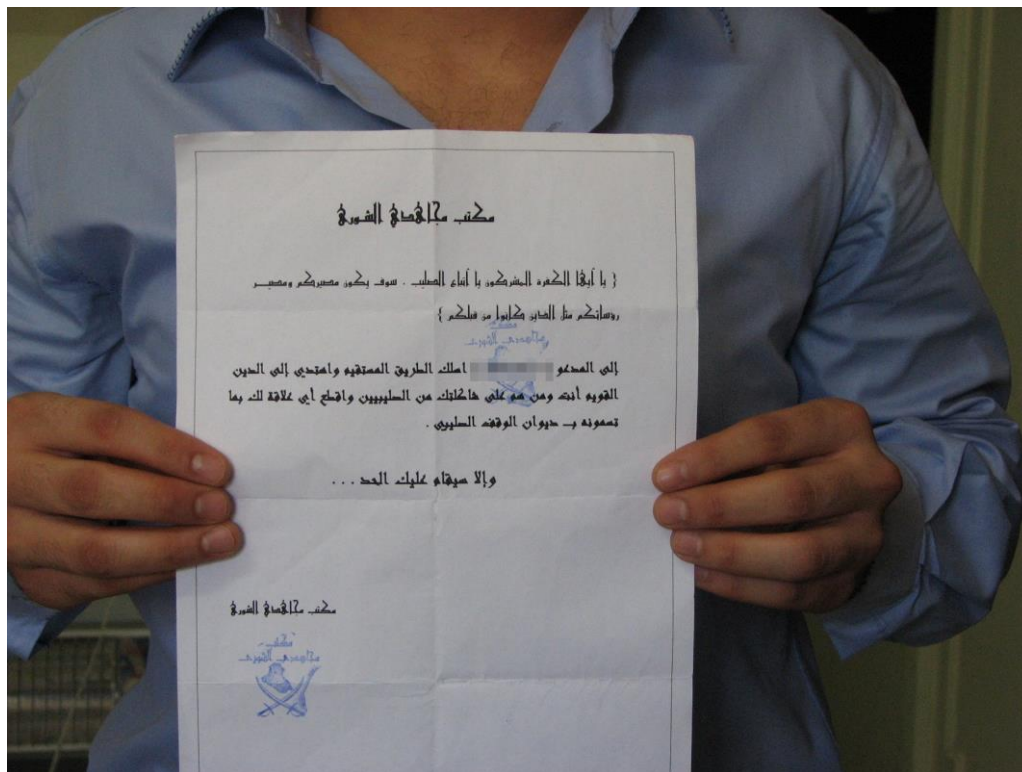 مكتب مجاهدي الشورى
{ يا أيها الكفرة المشركون يا أتباع الصليب . سوف يكون مصيركم ومصير
روسائكم مثل الذين كانوا من قبلكم }
مكتب
مجاهدي الشورى
إلى المدعو اسلك الطريق المستقيم واهتدي إلى الدين
القويم أنت ومن هو على شاكلتك من الصليبيين واقطع أي علاقة لك بما
تسمونه بـ ديوان الوقف الصليبي .
وإلا سيقام عليك الحد . . .
مكتب مجاهدي الشورى
مكتب
مجاهدي الشورى